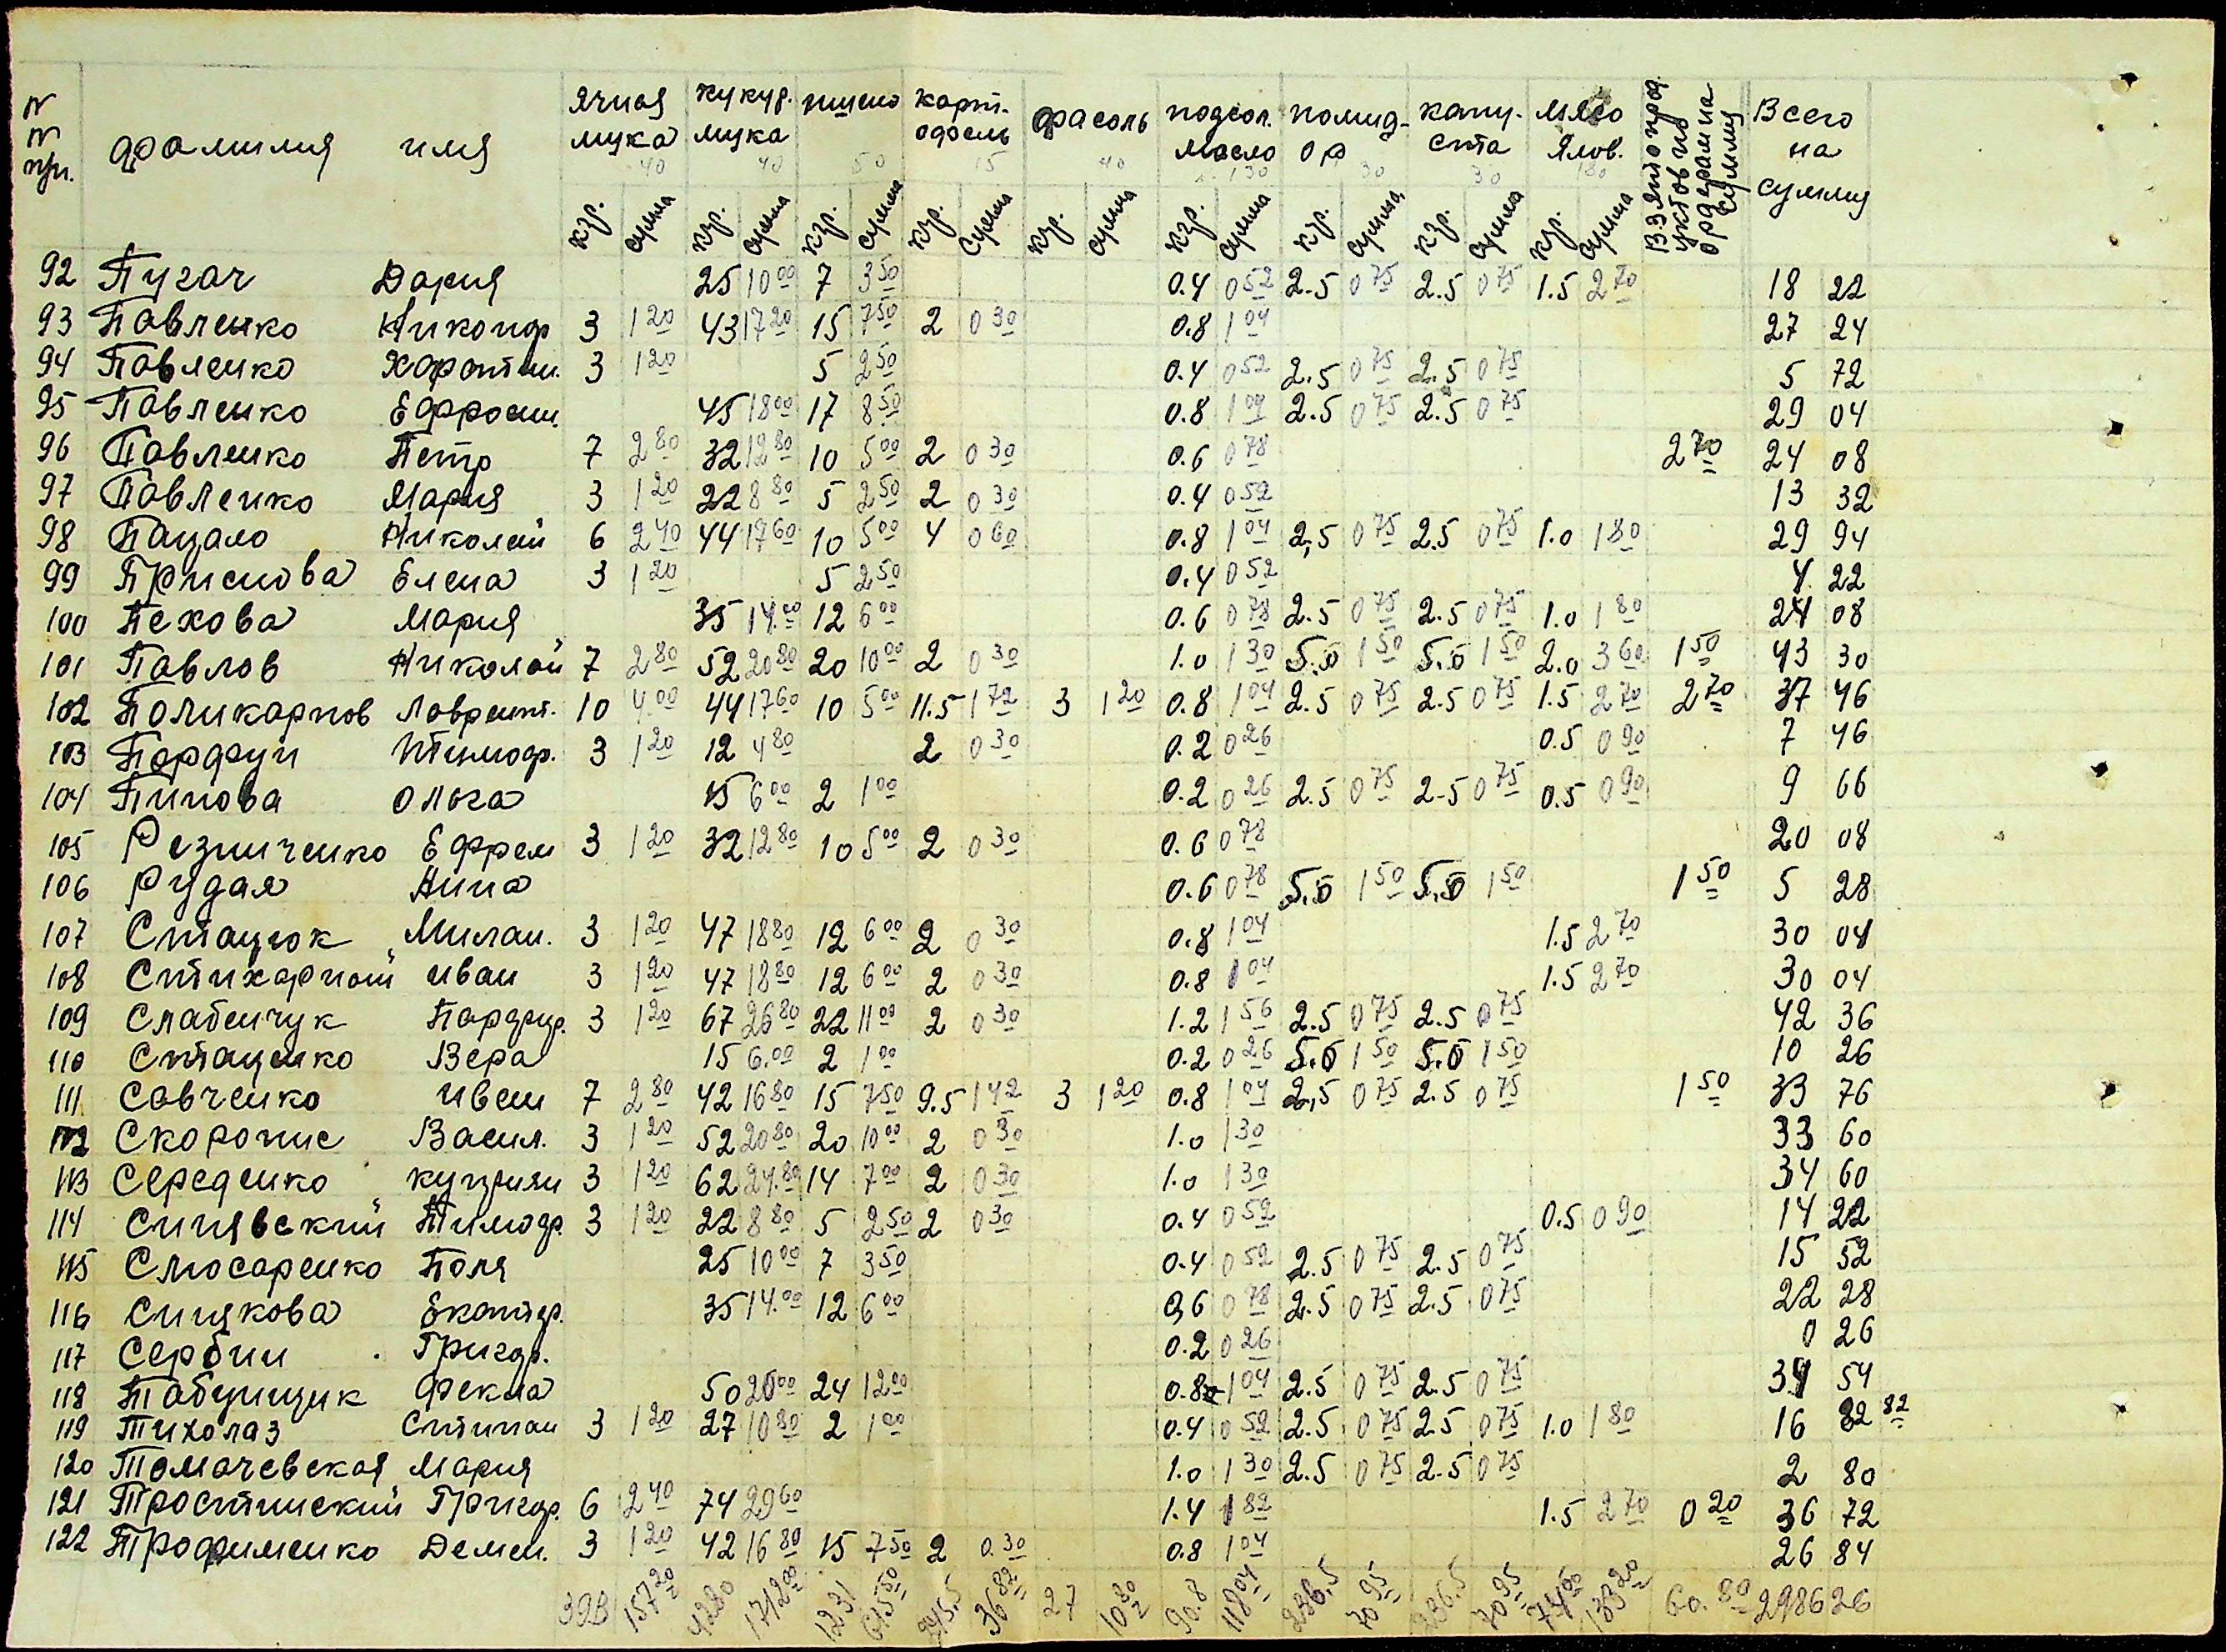 N N пп. фамилия имя ячная мука кукур. мука пшено карт. офель фасоль подсол. масло помид- ор капу- ста мясо ялов. Взято продуктов по ордерам на сумму Всего на сумму
40 40 50 15 40 130 30 30 180
кгр. сумма кгр. сумма кгр. сумма кгр. сумма кгр. сумма кгр. сумма кгр. сумма кгр. сумма кгр. сумма
92 Пугач Дария 25 10 00 7 3 50 0.4 0 52 2.5 0 75 2.5 0 75 1.5 2 70 18 22
93 Павленко Никонф 3 1 20 43 17 20 15 7 50 2 0 30 0.8 1 04 27 24
94 Павленко Харотин. 3 1 20 5 2 50 0.4 0 52 2.5 0 75 2.5 0 75 5 72
95 Павленко Ефросин. 45 18 00 17 8 50 0.8 1 04 2.5 0 75 2.5 0 75 29 04
96 Павленко Петр 7 2 80 32 12 80 10 5 00 2 0 30 0.6 0 78 2 70 24 08
97 Павленко Мария 3 1 20 22 8 80 5 2 50 2 0 30 0.4 0 52 13 32
98 Пацало Николай 6 2 40 44 17 60 10 5 00 4 0 60 0.8 1 04 2,5 0 75 2.5 0 75 1.0 1 80 29 94
99 Приснова Елена 3 1 20 5 2 50 0.4 0 52 4 22
100 Пехова Мария 35 14.00 12 6 00 0.6 0 78 2.5 0 75 2.5 0 75 1.0 1 80 24 08
101 Павлов Николай 7 2 80 52 20 80 20 10 00 2 0 30 1.0 1 30 5.0 1 50 5.0 1 50 2.0 3 60 1 50 43 30
102 Поликарпов Лаврент. 10 4.00 44 17 60 10 5 00 11.5 1 72 3 1 20 0.8 1 04 2.5 0 75 2.5 0 75 1.5 2 70 2 70 37 46
103 Парфун Тимоф. 3 1 20 12 4 80 2 0 30 0.2 0 26 0.5 0 90 7 46
104 Пинова Ольга 15 6 00 2 1 00 0.2 0 26 2.5 0 75 2.5 0 75 0.5 0 90 9 66
105 Резниченко Ефрем 3 1 20 32 12 80 10 5 00 2 0 30 0.6 0 78 20 08
106 Рудая Анна 0.6 0 78 5.0 1 50 5.0 1 50 1 50 5 28
107 Стацюк Милан. 3 1 20 47 18 80 12 6 00 2 0 30 0.8 1 04 1.5 2 70 30 04
108 Стихарный Иван 3 1 20 47 18 80 12 6 00 2 0 30 0.8 1 04 1.5 2 70 30 04
109 Слабенчук Парфир. 3 1 20 67 26 80 22 11 00 2 0 30 1.2 1 56 2.5 0 75 2.5 0 75 42 36
110 Стаценко Вера 15 6.00 2 1 00 0.2 0 26 5.0 1 50 5.0 1 50 10 26
111 Савченко Ивен 7 2 80 42 16 80 15 7 50 9.5 1 42 3 1 20 0.8 1 04 2,5 0 75 2.5 0 75 1 50 33 76
112 Скоропис Васил. 3 1 20 52 20 80 20 10 00 2 0 30 1.0 1 30 33 60
113 Середенко Куприян 3 1 20 62 24.80 14 7 00 2 0 30 1.0 1 30 34 60
114 Синявский Тимоф. 3 1 20 22 8 80 5 2 50 2 0 30 0.4 0 52 0.5 0 90 14 22
115 Слюсаренко Поля 25 10 00 7 3 50 0.4 0 52 2.5 0 75 2.5 0 75 15 52
116 Синякова Екатер. 35 14.00 12 6 00 0,6 0 78 2.5 0 75 2.5 0 75 22 28
117 Сербин Григор. 0.2 0 26 0 26
118 Табунщик Фекла 50 20 00 24 12 00 0.8 1 04 2.5 0 75 2.5 0 75 34 54
119 Тихолаз Стипан 3 1 20 27 10 80 2 1 00 0.4 0 52 2.5 0 75 2.5 0 75 1.0 1 80 16 82 82
120 Томачевская Мария 1.0 1 30 2.5 0 75 2.5 0 75 2 80
121 Тростинский Григор. 6 2 40 74 29 60 1.4 1 82 1.5 2 70 0 20 36 72
122 Трофименко Демен. 3 1 20 42 16 80 15 7 50 2 0.30 0.8 1 04 26 84
393 157 20 4280 1712 00 1231 615 50 245,5 36 82 27 10 80 90.8 118 04 236,5 70 95 236.5 70 95 74 00 133 20 60.80 2986 26